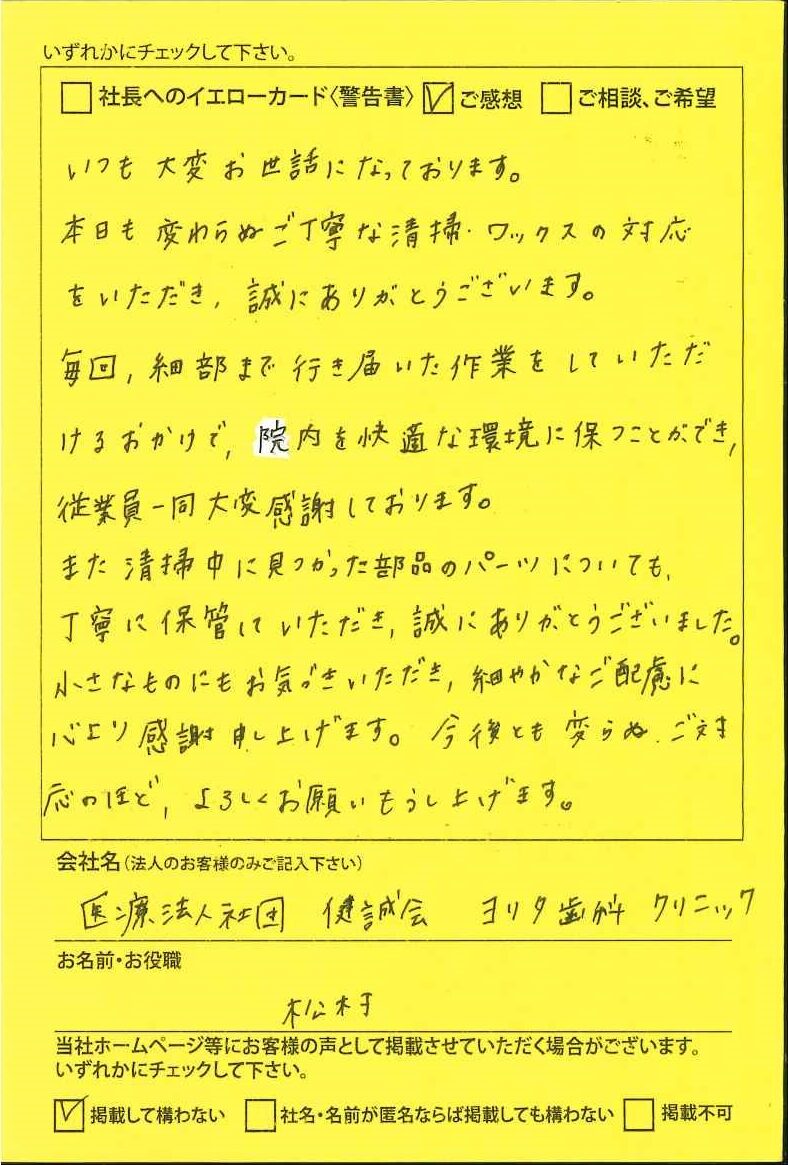 いずれかにチェックして下さい。
□ 社長へのイエローカード〈警告書〉 ☑ ご感想 □ ご相談、ご希望
いつも大変お世話になっております。
本日も変わらぬご丁寧な清掃・ワックスの対応
をいただき、誠にありがとうございます。
毎回、細部まで行き届いた作業をしていただ
けるおかけで、院内を快適な環境に保つことができ、
従業員一同大変感謝しております。
また清掃中に見つかった部品のパーツについても、
丁寧に保管していただき、誠にありがとうございました。
小さなものにもお気づきいただき、細やかなご配慮に
心より感謝申し上げます。今後とも変らぬご対
応のほど、よろしくお願いもうし上げます。
会社名(法人のお客様のみご記入下さい)
医療法人社団 健誠会 ヨリタ歯科クリニック
お名前・お役職
松村
当社ホームページ等にお客様の声として掲載させていただく場合がございます。
いずれかにチェックして下さい。
☑ 掲載して構わない □ 社名・名前が匿名ならば掲載しても構わない □ 掲載不可